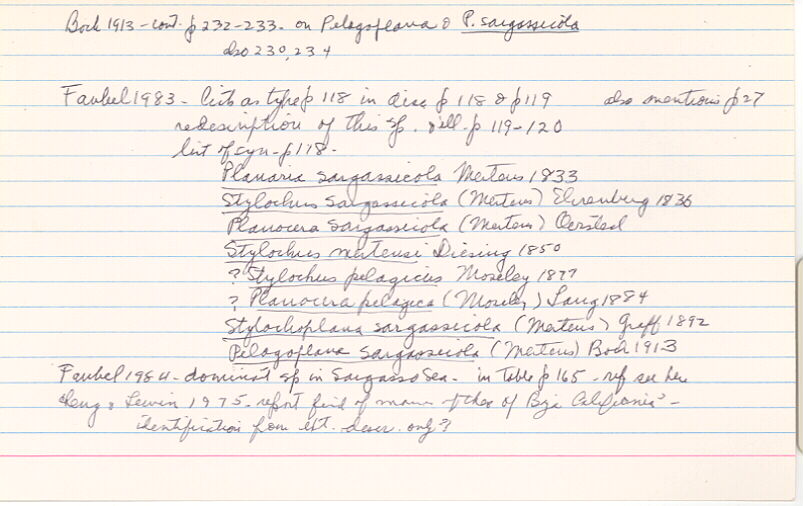 Bock 1913 - cont. p 232-233. on Pelagoplana & P. sargassicola
also 230, 234
Faubel 1983 - lists as type p 118 in disc p 118 & p 119 also mentions p 27
redescription of this sp. & ill. p 119-120
list of syn - p 118 -
Planaria sargassicola Mertens 1833
Stylochus sargassicola (Mertens) Ehrenberg 1836
Planocera sargassicola (Mertens) Oersted
Stylochus mertensi Diesing 1850
? Stylochus pelagicus Moseley 1877
? Planocera pelagica (Moseley) Lang 1884
Stylochoplana sargassicola (Mertens) Graff 1892
Pelagoplana sargassicola (Mertens) Bock 1913
Faubel 1984 - dominant sp in Sargasso Sea - in table p 165 - ref see here
Cheng & Lewin 1975 - report find of many of these of Baja California -
identification from ext. descr. only?